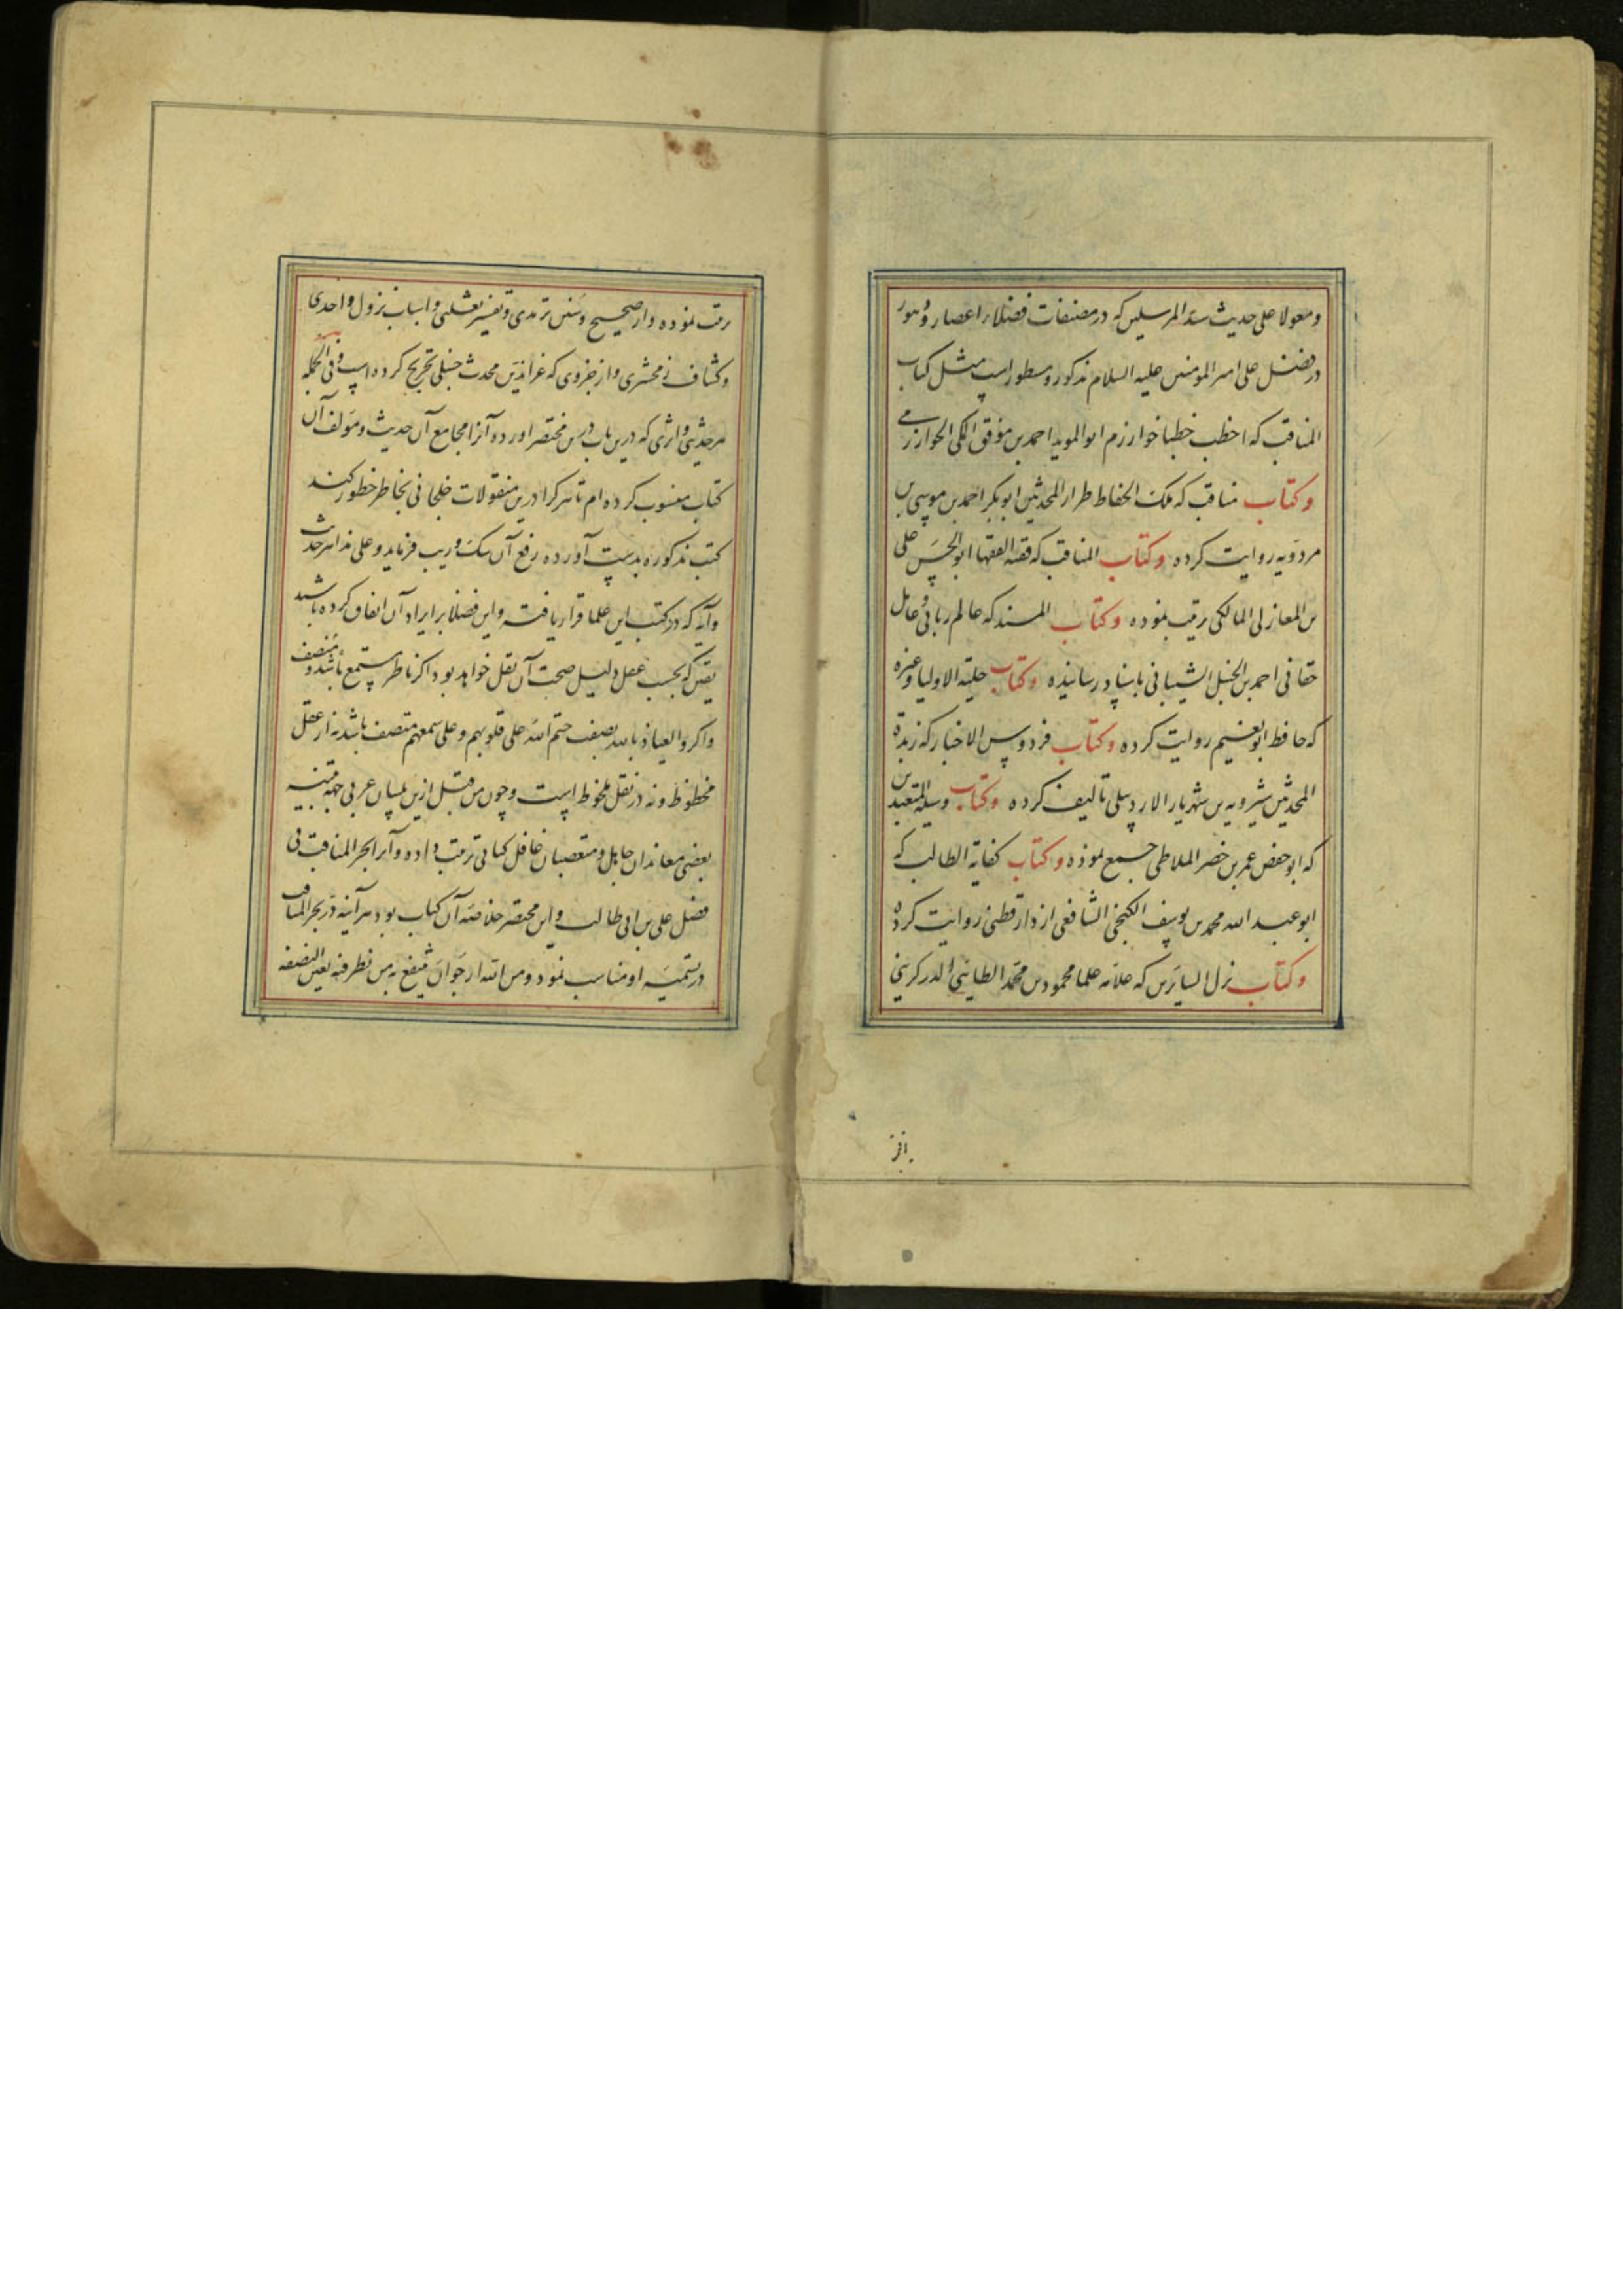 ومعولا علی حدیث سید المرسلین که در مصنفات فضلاء اعصار و دهور
در فضل علی امیر المومنین علیه السلام مذکور و مسطور است مثل کتاب
المناقب که اخطب خطبا خوارزم ابو الموید احمد بن موفق المکی الخوارزمی
وکتاب مناقب که ملک الحفاظ طراز المحدثین ابو بکر احمد بن موسی بن
مردویه روایت کرده وکتاب المناقب که فقیه الفقها ابو الحسن علی
بن المغازلی المالکی ترتیب نموده وکتاب المسند که عالم ربانی و عامل
حقانی احمد بن الحنبل الشیبانی باسناد رسانیده وکتاب حلیة الاولیا وغیره
که حافظ ابو نعیم روایت کرده وکتاب فردوس الاخبار که زبدة
المحدثین شیرویه بن شهریار الاردبیلی تالیف کرده وکتاب وسیلة المتعبدین
که ابو حفص عمر بن خضر الملاطی جمیع نموده وکتاب کفایة الطالب که
ابو عبد الله محمد بن یوسف الکنجی الشافعی از دارقطنی روایت کرده
وکتاب نزل السایرین که علامه علما محمود بن محمد الطالبی الدرکزینی
ترتیب نموده واز صحیح وسنن ترمدی وتفسیر ثعلبی واسباب نزول واحدی
وکشاف زمخشری واز جزوی که عز الدین محدث حنبلی تخریج کرده است وفی الجمله
هر حدیثی واثری که درین باب درین مختصر آورده آنرا بجامع آن حدیث ومولف آن
کتاب منسوب کرده ام تا هر کرا درین منقولات خلجانی بخاطر خطور کند
کتب مذکوره بدست آورده رفع آن شک وریب فرماید وعلی هذا هر حدیث
وآیه که در کتب این علما قرار یافته واین فضلا بر ایراد آن اتفاق کرده باشند
یقین که بحسب عقل ودلیل صحت آن نقل خواهد بود اکر ناظر ومستمع باشد ومنصف
واکر والعیاذ بالله بصفت ختم الله علی قلوبهم وعلی سمعهم متصف باشد نه از عقل
محظوظ ونه در نقل ملحوظ است وچون من قبل ازین بلسان عربی جهة تنبیه
بعضی معاندان جاهل ومتعصبان غافل کتابی ترتیب داده وآنرا بحر المناقب فی
فضل علی بن ابی طالب واین مختصر خلاصه آن کتاب بود هر آینه درر بحر المناقب
در تسمیه او مناسب نمود ومن الله ارجو ان ینفع به من نظر فیه بعین النصفه